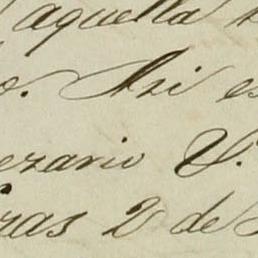 aquella
o. Asi es
ezario V.
zas 2 de